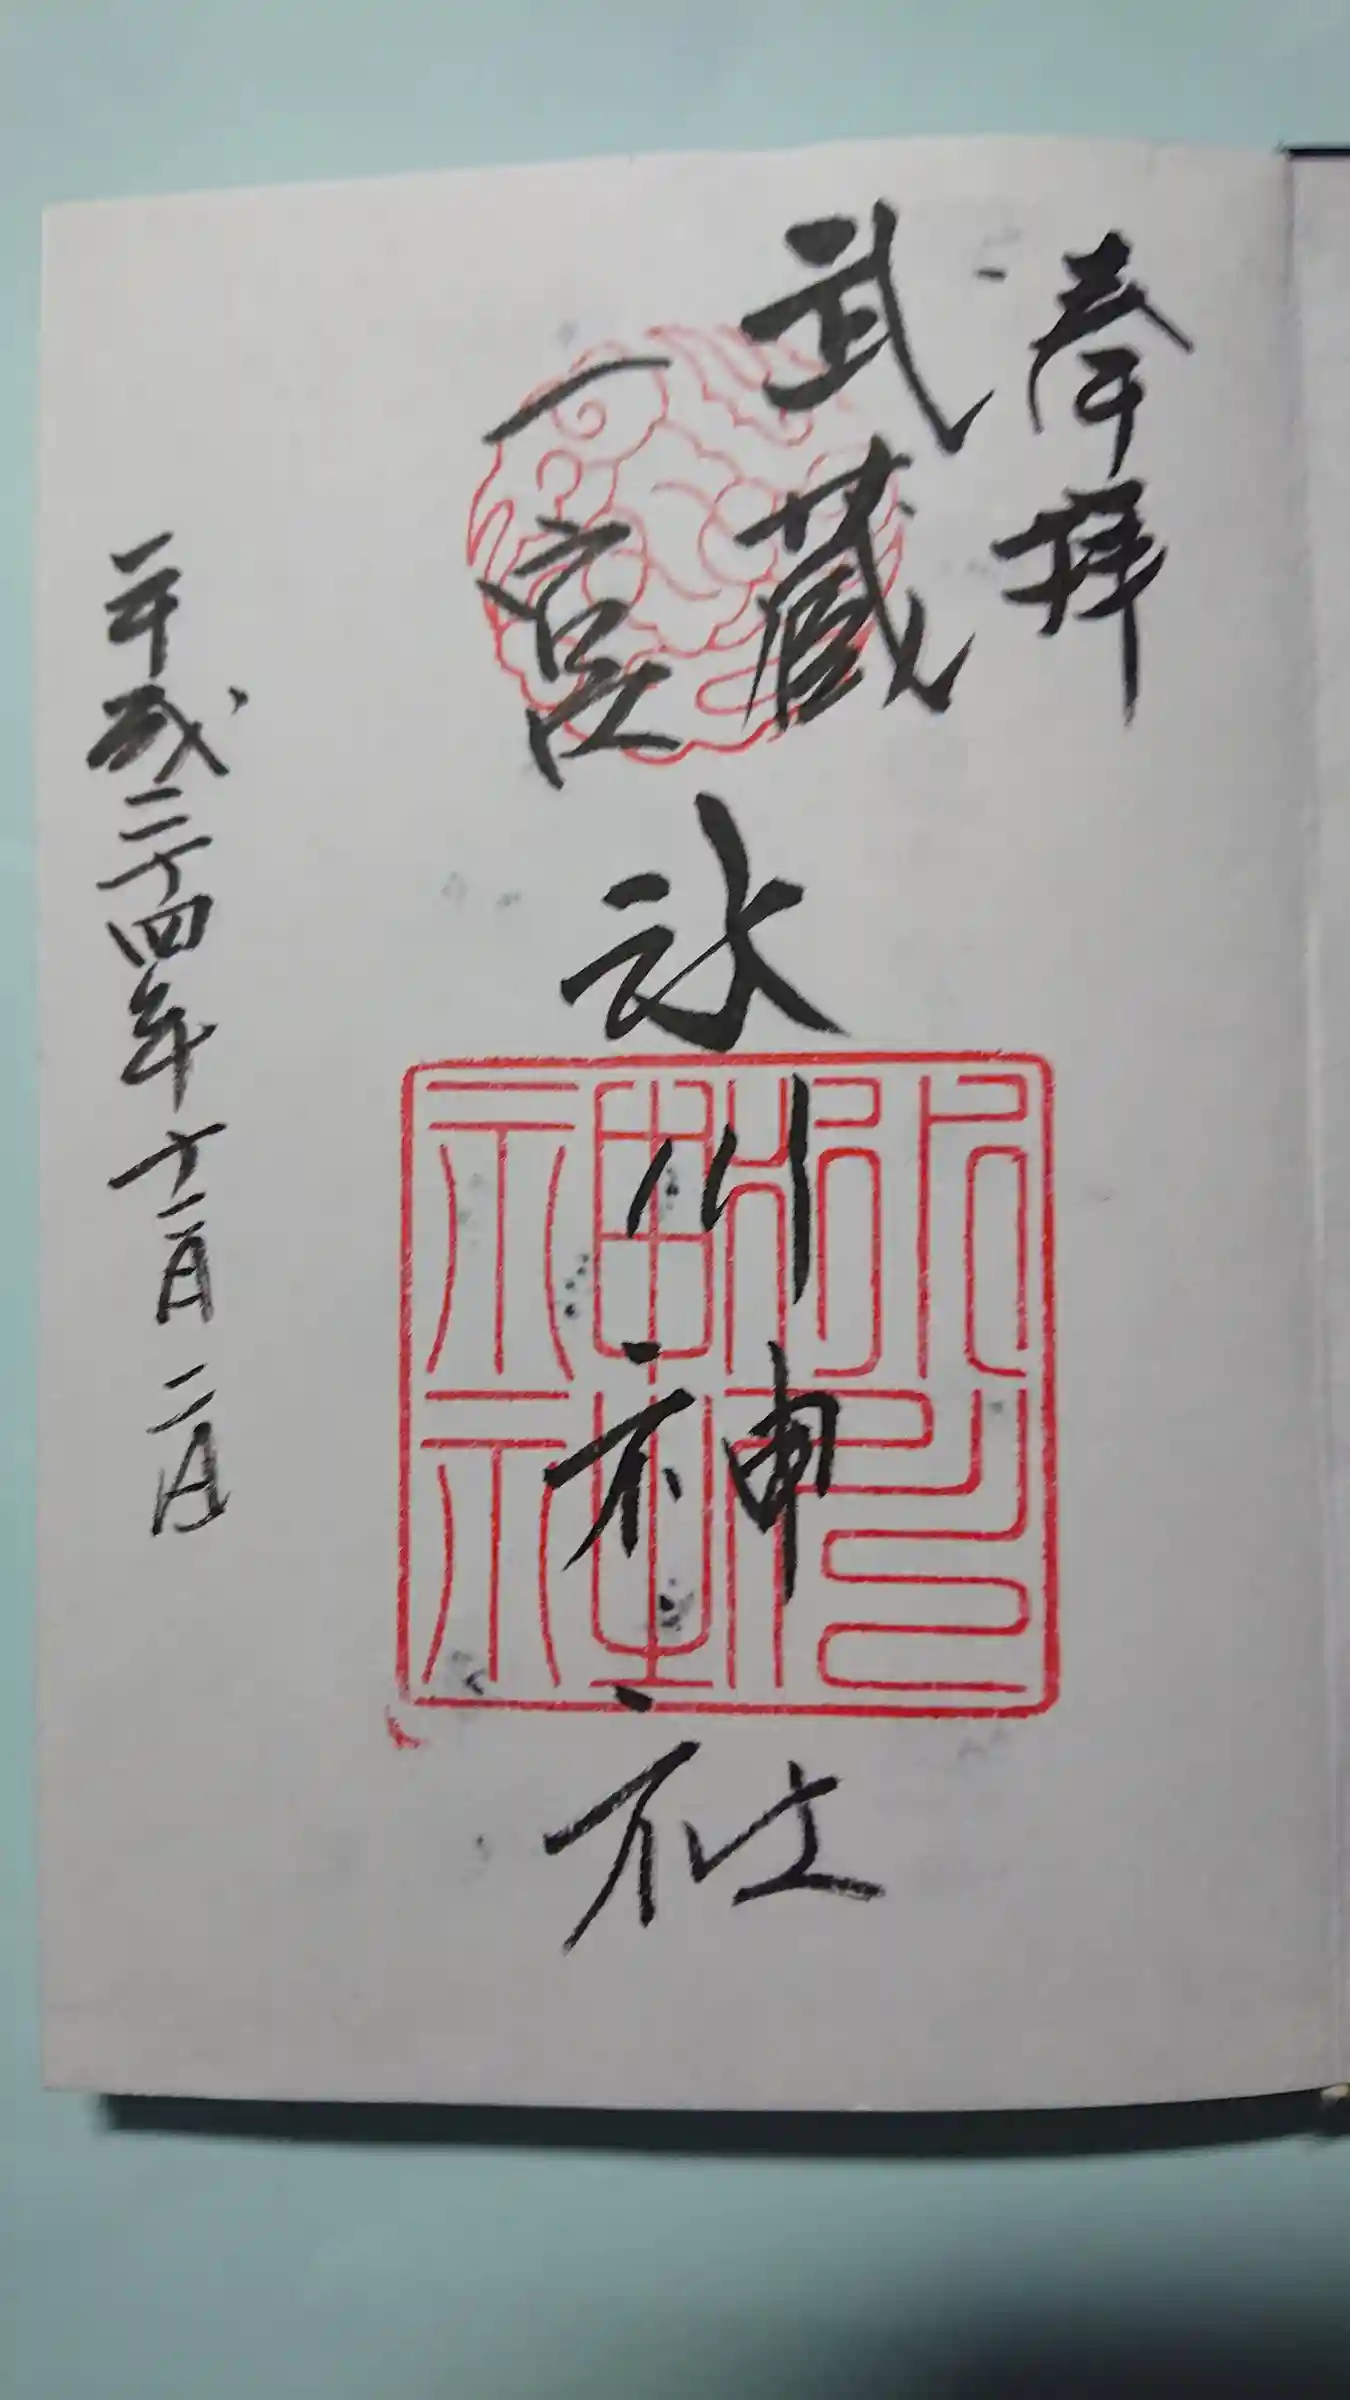 奉拝
武蔵
一宮
氷川神社
平成二十四年十一月二日